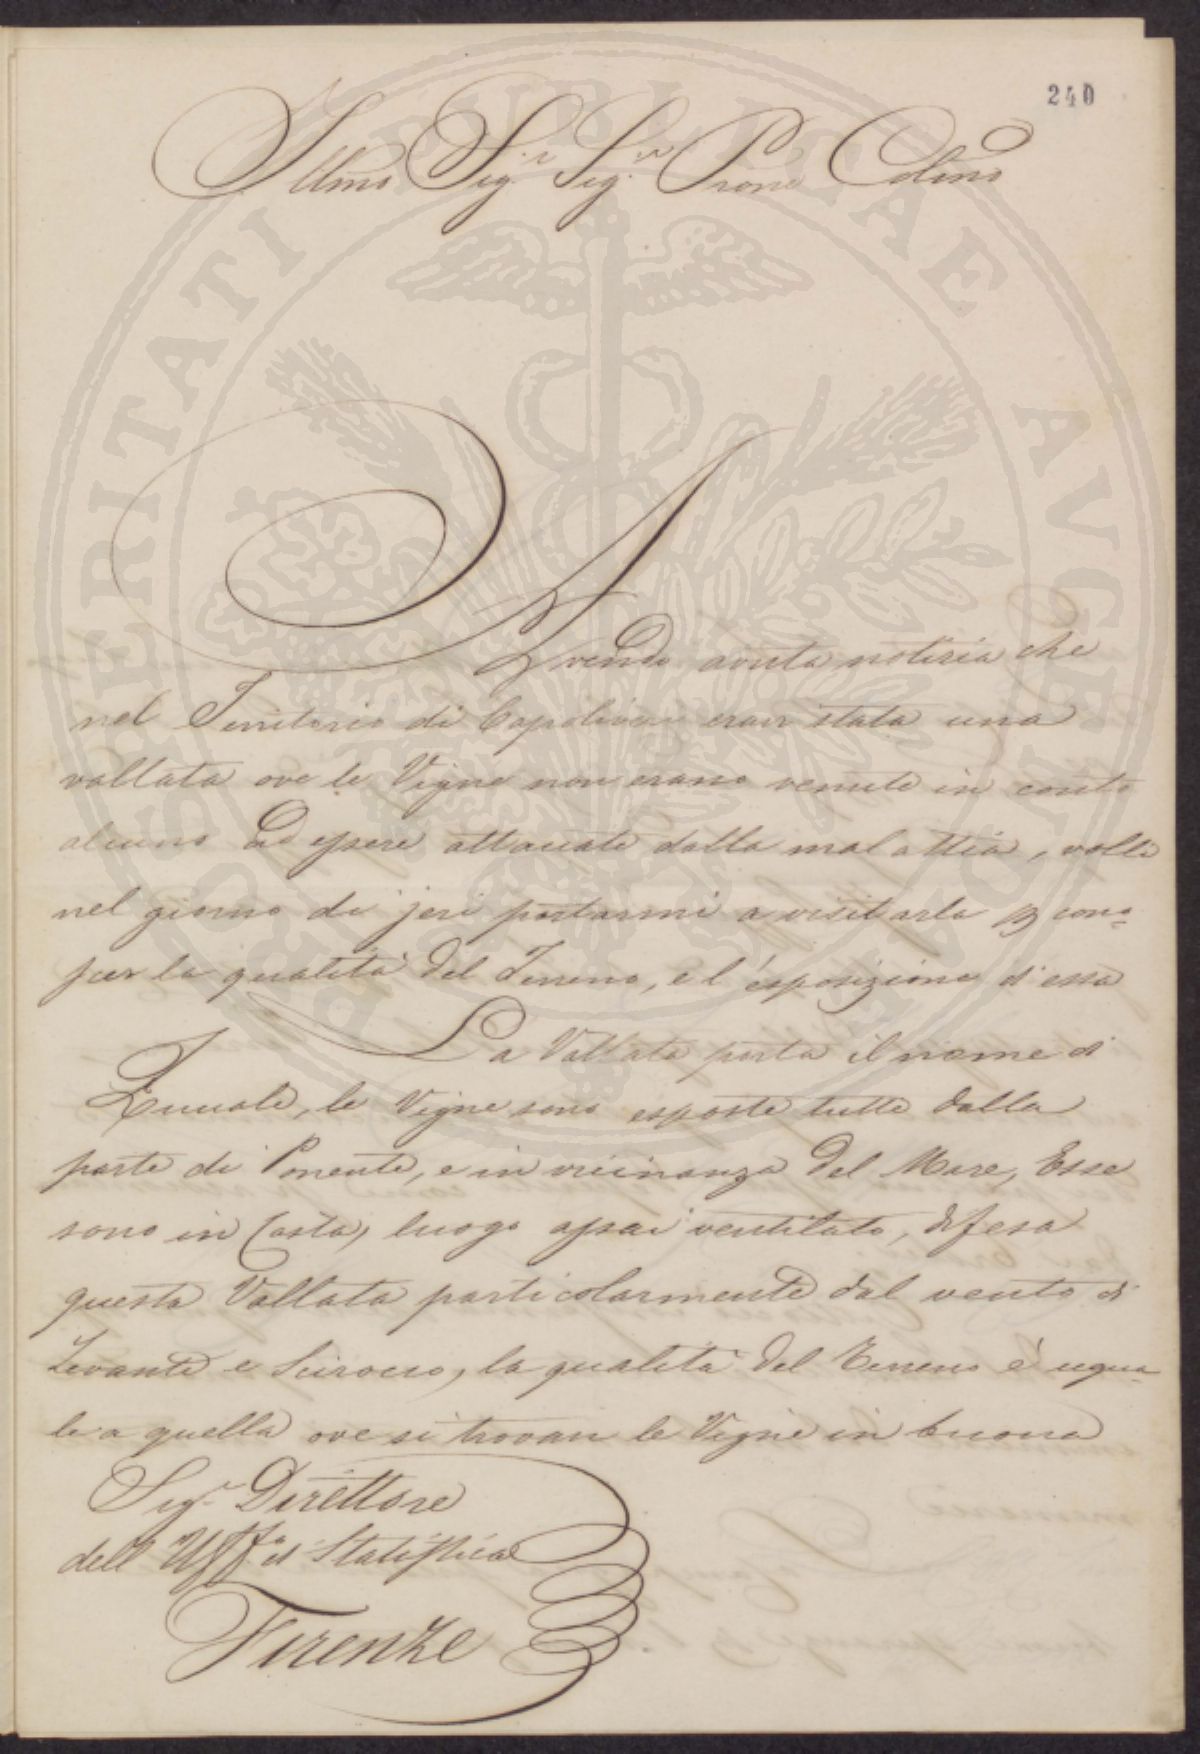 240
Illmo Sig.r Sig.r Prone Colmo
Avendo avuta notizia che
nel Territorio di Capoliveri eravi stata una
vallata ove le Vigne non erano venute in conto
alcuno ad essere attaccate dalla malattia, volli
nel giorno di jeri portarmi a visitarla
per la qualità del Terreno, e l'esposizione d'essa
La Vallata porta il nome di
le Vigne sono esposte tutte dalla
parte di Ponente, e in vicinanza del Mare, Esse
sono in Costa, luogo assai ventilato, difesa
questa Vallata particolarmente dal vento di
Levante e Scirocco, la qualità del Terreno è ugua=
le a quella ove si trovan le Vigne in buona
Sig.r Direttore
dell' Uff.o di Statistica
Firenze
PROSPERITATI PUBLICAE AVGENDAE